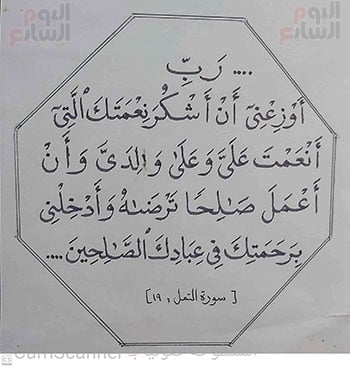 اليوم السابع
اليوم السابع
.... رَبِّ
أَوْزِعْنِىٓ أَنْ أَشْكُرَ نِعْمَتَكَ ٱلَّتِىٓ
أَنْعَمْتَ عَلَىَّ وَعَلَىٰ وَٰلِدَىَّ وَأَنْ
أَعْمَلَ صَٰلِحًا تَرْضَىٰهُ وَأَدْخِلْنِى
بِرَحْمَتِكَ فِى عِبَادِكَ ٱلصَّٰلِحِينَ ....
[ سورة النمل , ١٩ ]
CamScanner